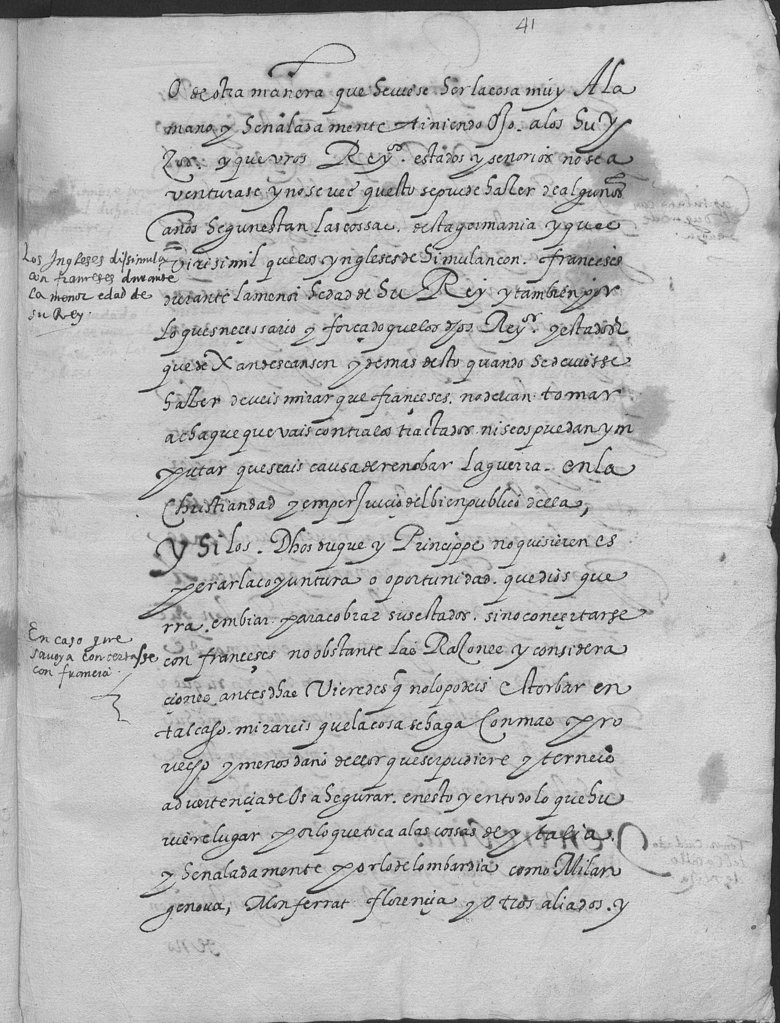 41
O de otra manera que hewiese ser la cosa muy A la
mano y señaladamente tiniendo Ojo. a los Suy
zos. y que vros Rey.os estados y señorios no se a
venturase y no se vee que esto se puede hazer de algunos
años segun estan las cossas. desta germania y que es
virisimil que los yngleses desimulan con. franceses
durante la menor hedad de su Rey y tambien por
lo que es necessario y forçado que los dhos Rey.os y estados
que deXan descansen y demas desto quando se deviesse
hazer deveis mirar que françeses. no devan tomar
achaque que vais contra los tractados ni se os puedan ym
putar que seais causa de renobar la guerra. en la
Christiandad y en perJuicio del bien publico della,
Y si los. Dhos duque y Princippe no quisieren es
perar la coyuntura o oportunidad. que dios que
rra. embiar. para cobrar sus estados. sino conçertarse
con françeses no obstante las Razones y considera
çiones antes dhas Vieredes q no lo podeis estorbar en
tal caso. mirareis que la cosa se haga Con mas pro
vecho y menos daño dellos que ser pudiere y terneis
advertençia de Os asegurar. en esto y en todo lo que hu
viere lugar por lo que toca a las cossas de ytalia.
y señaladamente por lo de lombardia como Milan
genova, Monferrat florençia y Otros aliados. y
Los Ingleses dissimula
con franceses durante
la menor edad de
su Rey.
En caso que
savoya concertasse
con francia.